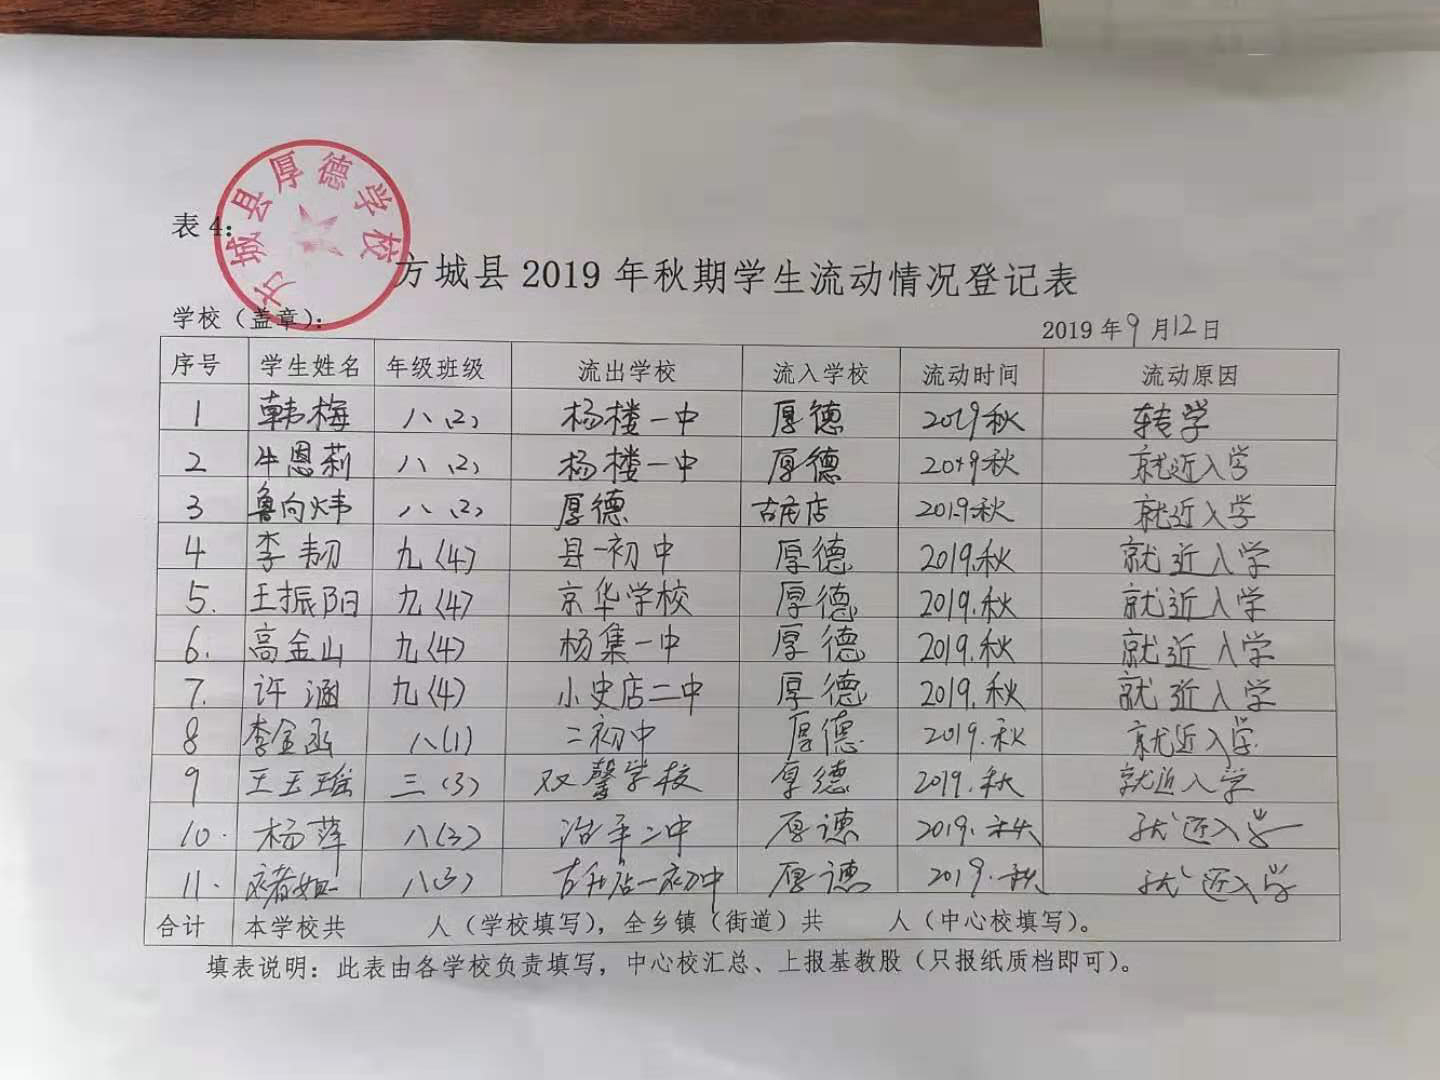 方城县厚德学校
表 4：
方城县 2019 年秋期学生流动情况登记表
学校（盖章）： 2019 年 9 月 12 日
序号 学生姓名 年级班级 流出学校 流入学校 流动时间 流动原因
1 韩梅 八(2) 杨楼一中 厚德 2019秋 转学
2 牛恩莉 八(2) 杨楼一中 厚德 2019秋 就近入学
3 鲁向炜 八(2) 厚德 古庄店 2019.秋 就近入学
4 李韧 九(4) 县一初中 厚德 2019.秋 就近入学
5. 王振阳 九(4) 京华学校 厚德 2019.秋 就近入学
6. 高金山 九(4) 杨集一中 厚德 2019.秋 就近入学
7. 许涵 九(4) 小史店二中 厚德 2019.秋 就近入学
8 李金函 八(1) 二初中 厚德 2019.秋 就近入学
9 王玉瑶 三(3) 双馨学校 厚德 2019.秋 就近入学
10. 杨萍 八(3) 二中 厚德 2019.秋 就近入学
11. 八(3) 古庄店一初中 厚德 2019.秋 就近入学
合计 本学校共 人（学校填写），全乡镇（街道）共 人（中心校填写）。
填表说明：此表由各学校负责填写，中心校汇总、上报基教股（只报纸质档即可）。